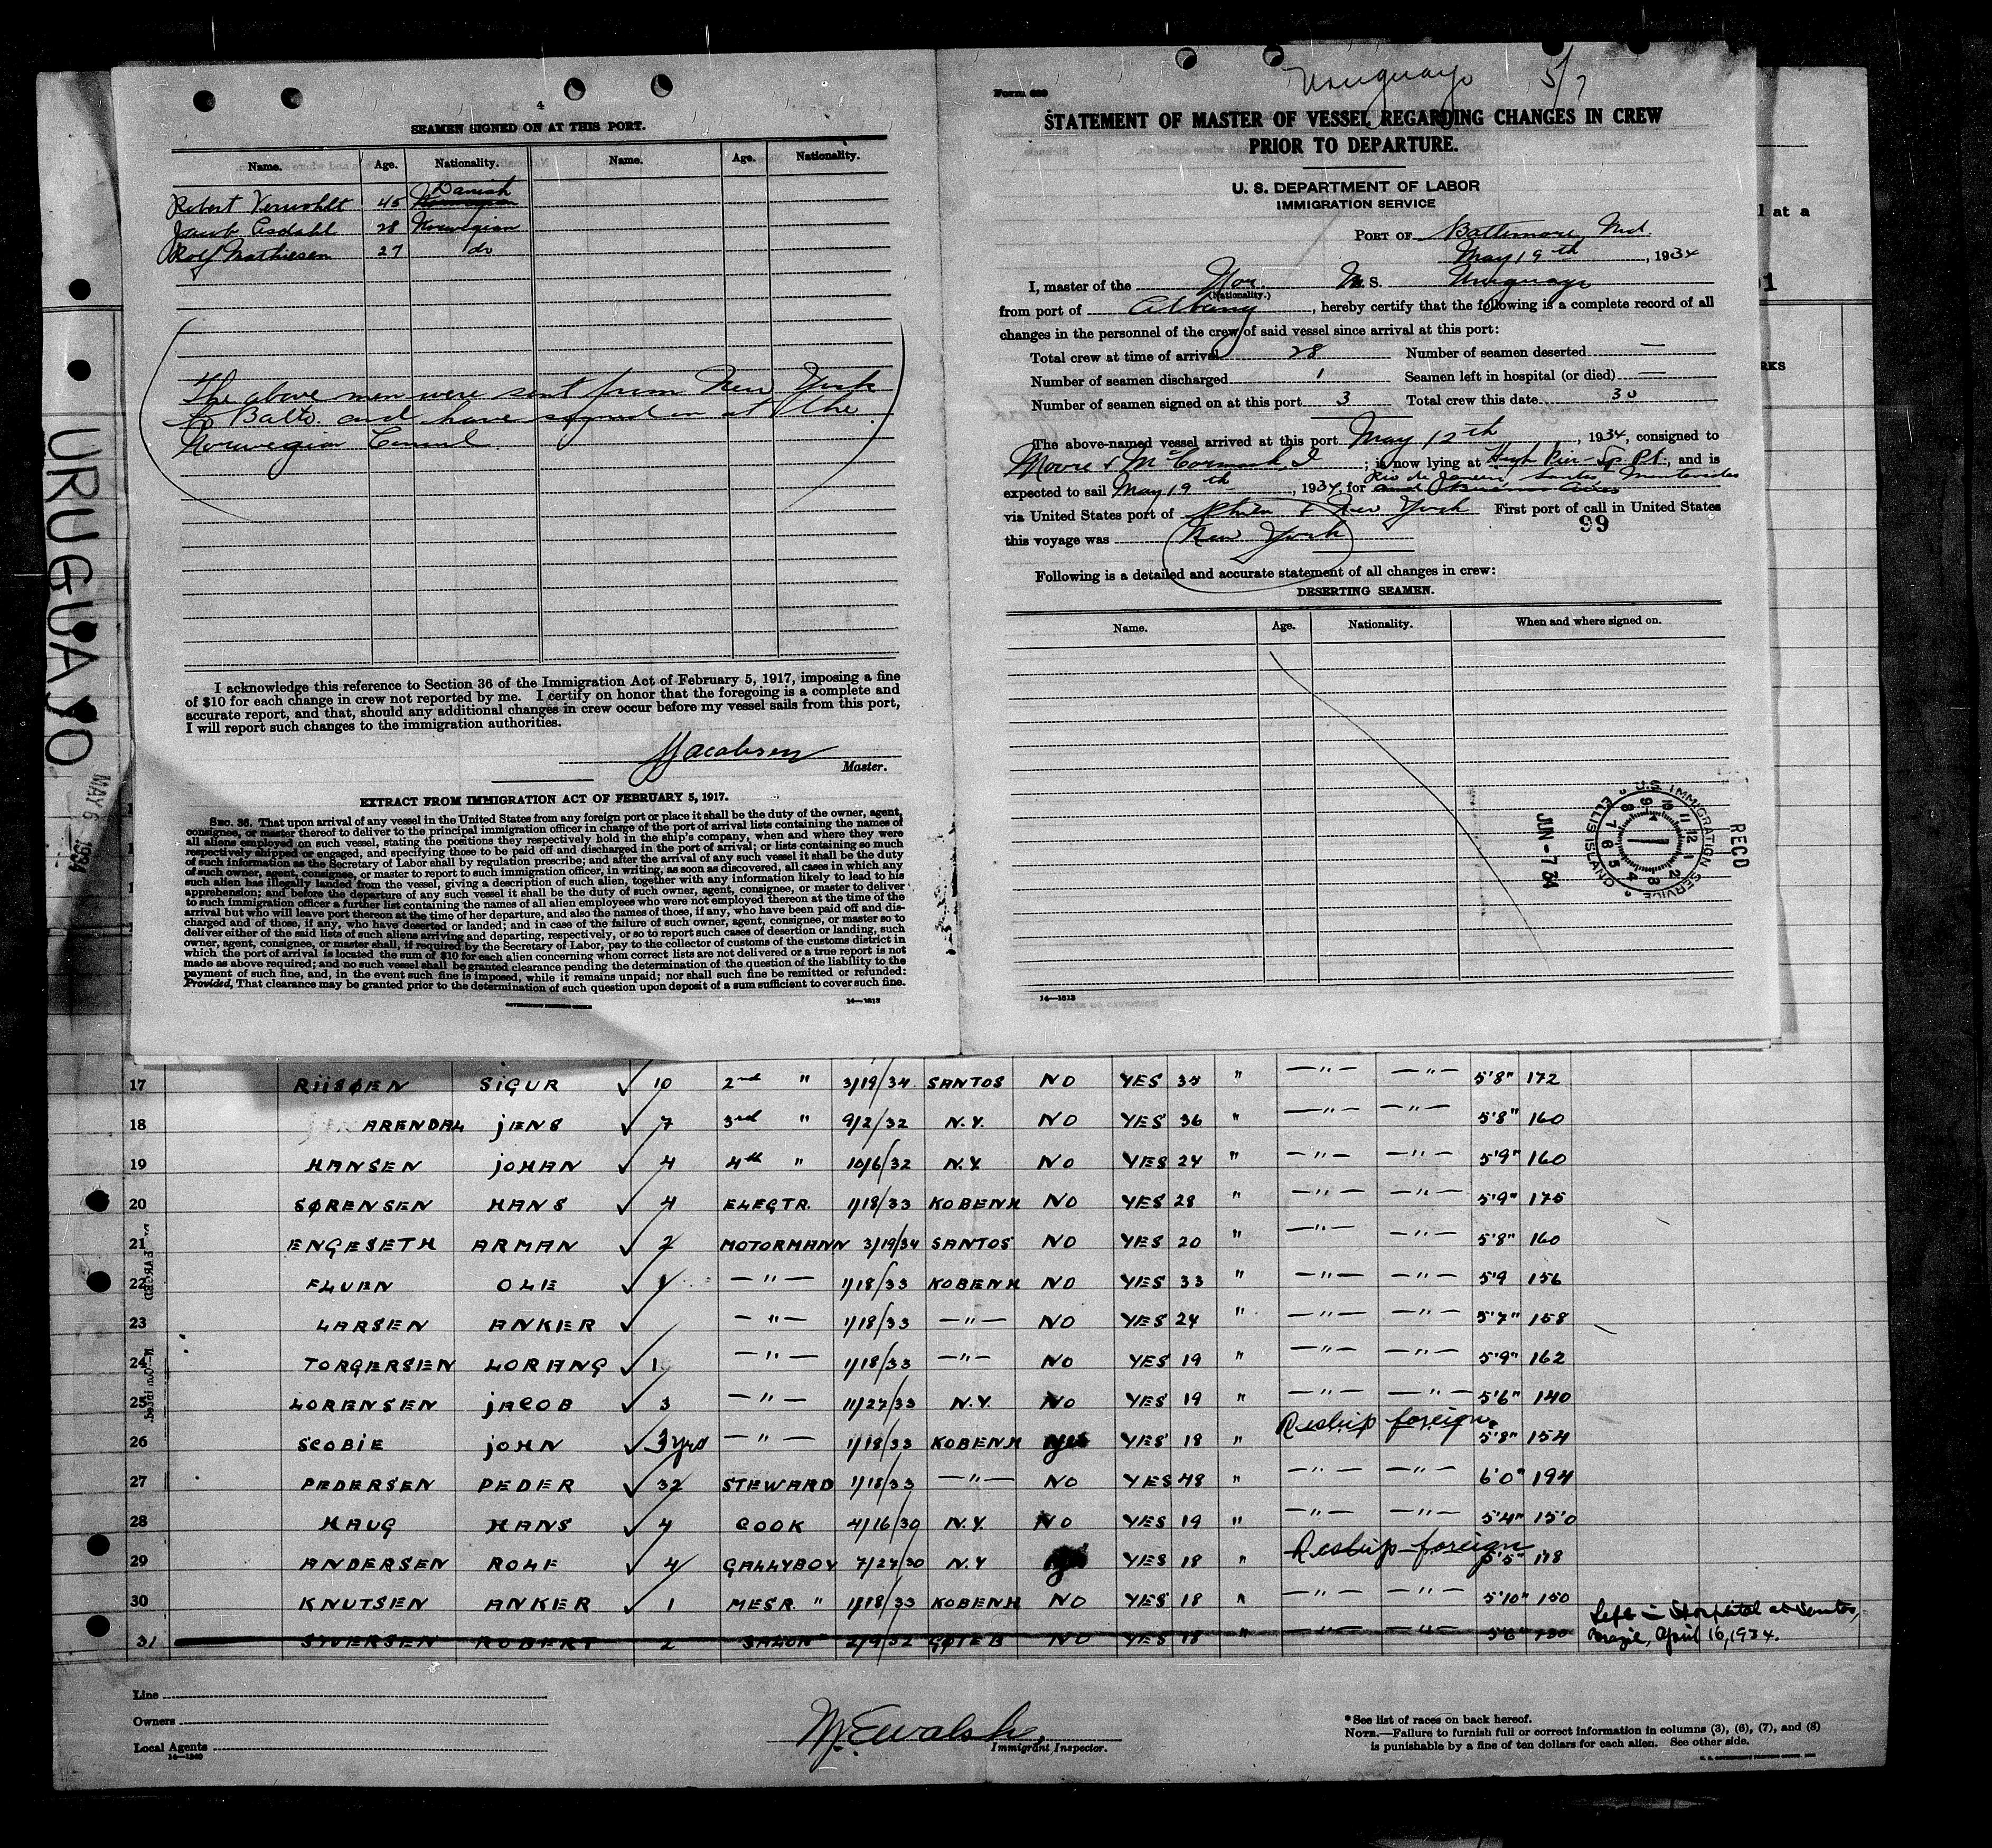 4
SEAMEN SIGNED ON AT THIS PORT.
Name. Age. Nationality. Name. Age. Nationality.
Danish
Robert Vermohlt 45 Norwegian
Jacob Asdahl 28 Norwegian
Rolf Mathiesen 27 do
The above men were sent from New York
to Balto. and have signed on at the
Norwegian Consul.
I acknowledge this reference to Section 36 of the Immigration Act of February 5, 1917, imposing a fine
of $10 for each change in crew not reported by me. I certify on honor that the foregoing is a complete and
accurate report, and that, should any additional changes in crew occur before my vessel sails from this port,
I will report such changes to the immigration authorities.
Jacobsen
Master.
EXTRACT FROM IMMIGRATION ACT OF FEBRUARY 5, 1917.
SEC. 36. That upon arrival of any vessel in the United States from any foreign port or place it shall be the duty of the owner, agent,
consignee, or master thereof to deliver to the principal immigration officer in charge of the port of arrival lists containing the names of
all aliens employed on such vessel, stating the positions they respectively hold in the ship's company, when and where they were
respectively shipped or engaged, and specifying those to be paid off and discharged in the port of arrival; or lists containing so much
of such information as the Secretary of Labor shall by regulation prescribe; and after the arrival of any such vessel it shall be the duty
of such owner, agent, consignee, or master to report to such immigration officer, in writing, as soon as discovered, all cases in which any
such alien has illegally landed from the vessel, giving a description of such alien, together with any information likely to lead to his
apprehension; and before the departure of any such vessel it shall be the duty of such owner, agent, consignee, or master to deliver
to such immigration officer a further list containing the names of all alien employees who were not employed thereon at the time of the
arrival but who will leave port thereon at the time of her departure, and also the names of those, if any, who have been paid off and dis-
charged and of those, if any, who have deserted or landed; and in case of the failure of such owner, agent, consignee, or master so to
deliver either of the said lists of such aliens arriving and departing, respectively, or so to report such cases of desertion or landing, such
owner, agent, consignee, or master shall, if required by the Secretary of Labor, pay to the collector of customs of the customs district in
which the port of arrival is located the sum of $10 for each alien concerning whom correct lists are not delivered or a true report is not
made as above required; and no such vessel shall be granted clearance pending the determination of the question of the liability to the
payment of such fine, and, in the event such fine is imposed, while it remains unpaid; nor shall such fine be remitted or refunded:
Provided, That clearance may be granted prior to the determination of such question upon deposit of a sum sufficient to cover such fine.
GOVERNMENT PRINTING OFFICE
14—1313
Uruguayo 5/7
Form 689
STATEMENT OF MASTER OF VESSEL REGARDING CHANGES IN CREW
PRIOR TO DEPARTURE.
U. S. DEPARTMENT OF LABOR
IMMIGRATION SERVICE
PORT OF Baltimore, Md.
May 19th, 1934
I, master of the Nor. M. S. Uruguayo
(Nationality.)
from port of Albany, hereby certify that the following is a complete record of all
changes in the personnel of the crew of said vessel since arrival at this port:
Total crew at time of arrival 28 Number of seamen deserted —
Number of seamen discharged 1 Seamen left in hospital (or died) —
Number of seamen signed on at this port 3 Total crew this date 30
The above-named vessel arrived at this port May 12th, 1934, consigned to
Moore & McCormack, I; is now lying at High Pier - Sp. Pt., and is
Rio de Janeiro, Santos, Montevideo
expected to sail May 19th, 1934, for and Buenos Aires
via United States port of Phila & New York First port of call in United States
99
this voyage was New York
Following is a detailed and accurate statement of all changes in crew:
DESERTING SEAMEN.
Name. Age. Nationality. When and where signed on.
RECD
U.S. IMMIGRATION SERVICE ELLIS ISLAND
JUN -7 34
14—1313
URUGUAYO
MAY 6 1934
l at a
RKS
17 RIISØEN SIGUR ✓ 10 2nd " 3/19/34 SANTOS NO YES 34 " —"— —"— 5'8" 172
18 ARENDAL JENS ✓ 7 3rd " 9/2/32 N.Y. NO YES 36 " —"— —"— 5'8" 160
19 HANSEN JOHAN ✓ 4 4th " 10/6/32 N.Y. NO YES 24 " —"— —"— 5'9" 160
20 SØRENSEN HANS ✓ 4 ELECTR. 1/18/33 KOBENH NO YES 28 " —"— —"— 5'9" 175
21 ENGESETH ARMAN ✓ 2 MOTORMANN 3/19/34 SANTOS NO YES 20 " —"— —"— 5'8" 160
22 FLUEN OLE ✓ 1 —"— 1/18/33 KOBENH NO YES 33 " —"— —"— 5'9 156
23 LARSEN ANKER ✓ —"— 1/18/33 —"— NO YES 24 " —"— —"— 5'7" 158
24 TORGERSEN LORANG ✓ 1 —"— 1/18/33 —"— NO YES 19 " —"— —"— 5'9" 162
25 LORENSEN JACOB ✓ 3 —"— 11/27/33 N.Y. NO YES 19 " —"— —"— 5'6" 140
26 SCOBIE JOHN ✓ 3 yrs —"— 1/18/33 KOBENH yes YES 18 " Reship foreign 5'8" 154
27 PEDERSEN PEDER ✓ 32 STEWARD 1/18/33 —"— NO YES 48 " —"— —"— 6'0" 194
28 HAUG HANS ✓ 4 COOK 4/16/30 N.Y. NO YES 19 " —"— —"— 5'4" 150
29 ANDERSEN ROLF ✓ 4 GALLYBOY 7/27/30 N.Y yes YES 18 " Reship foreign 5'5" 118
30 KNUTSEN ANKER ✓ 1 MESR. " 1/18/33 KOBENH NO YES 18 " —"— —"— 5'10" 150
31 SIVERSEN ROBERT 2 SALON " 2/9/32 GOTEB NO YES 18 " —"— —"— 5'6" 130 Left in Hospital at Santos,
Brazil, April 16, 1934.
Line
Owners
Local Agents
14—1240
M. E. Walsh,
Immigrant Inspector.
*See list of races on back hereof.
NOTE.—Failure to furnish full or correct information in columns (3), (6), (7), and (8)
is punishable by a fine of ten dollars for each alien. See other side.